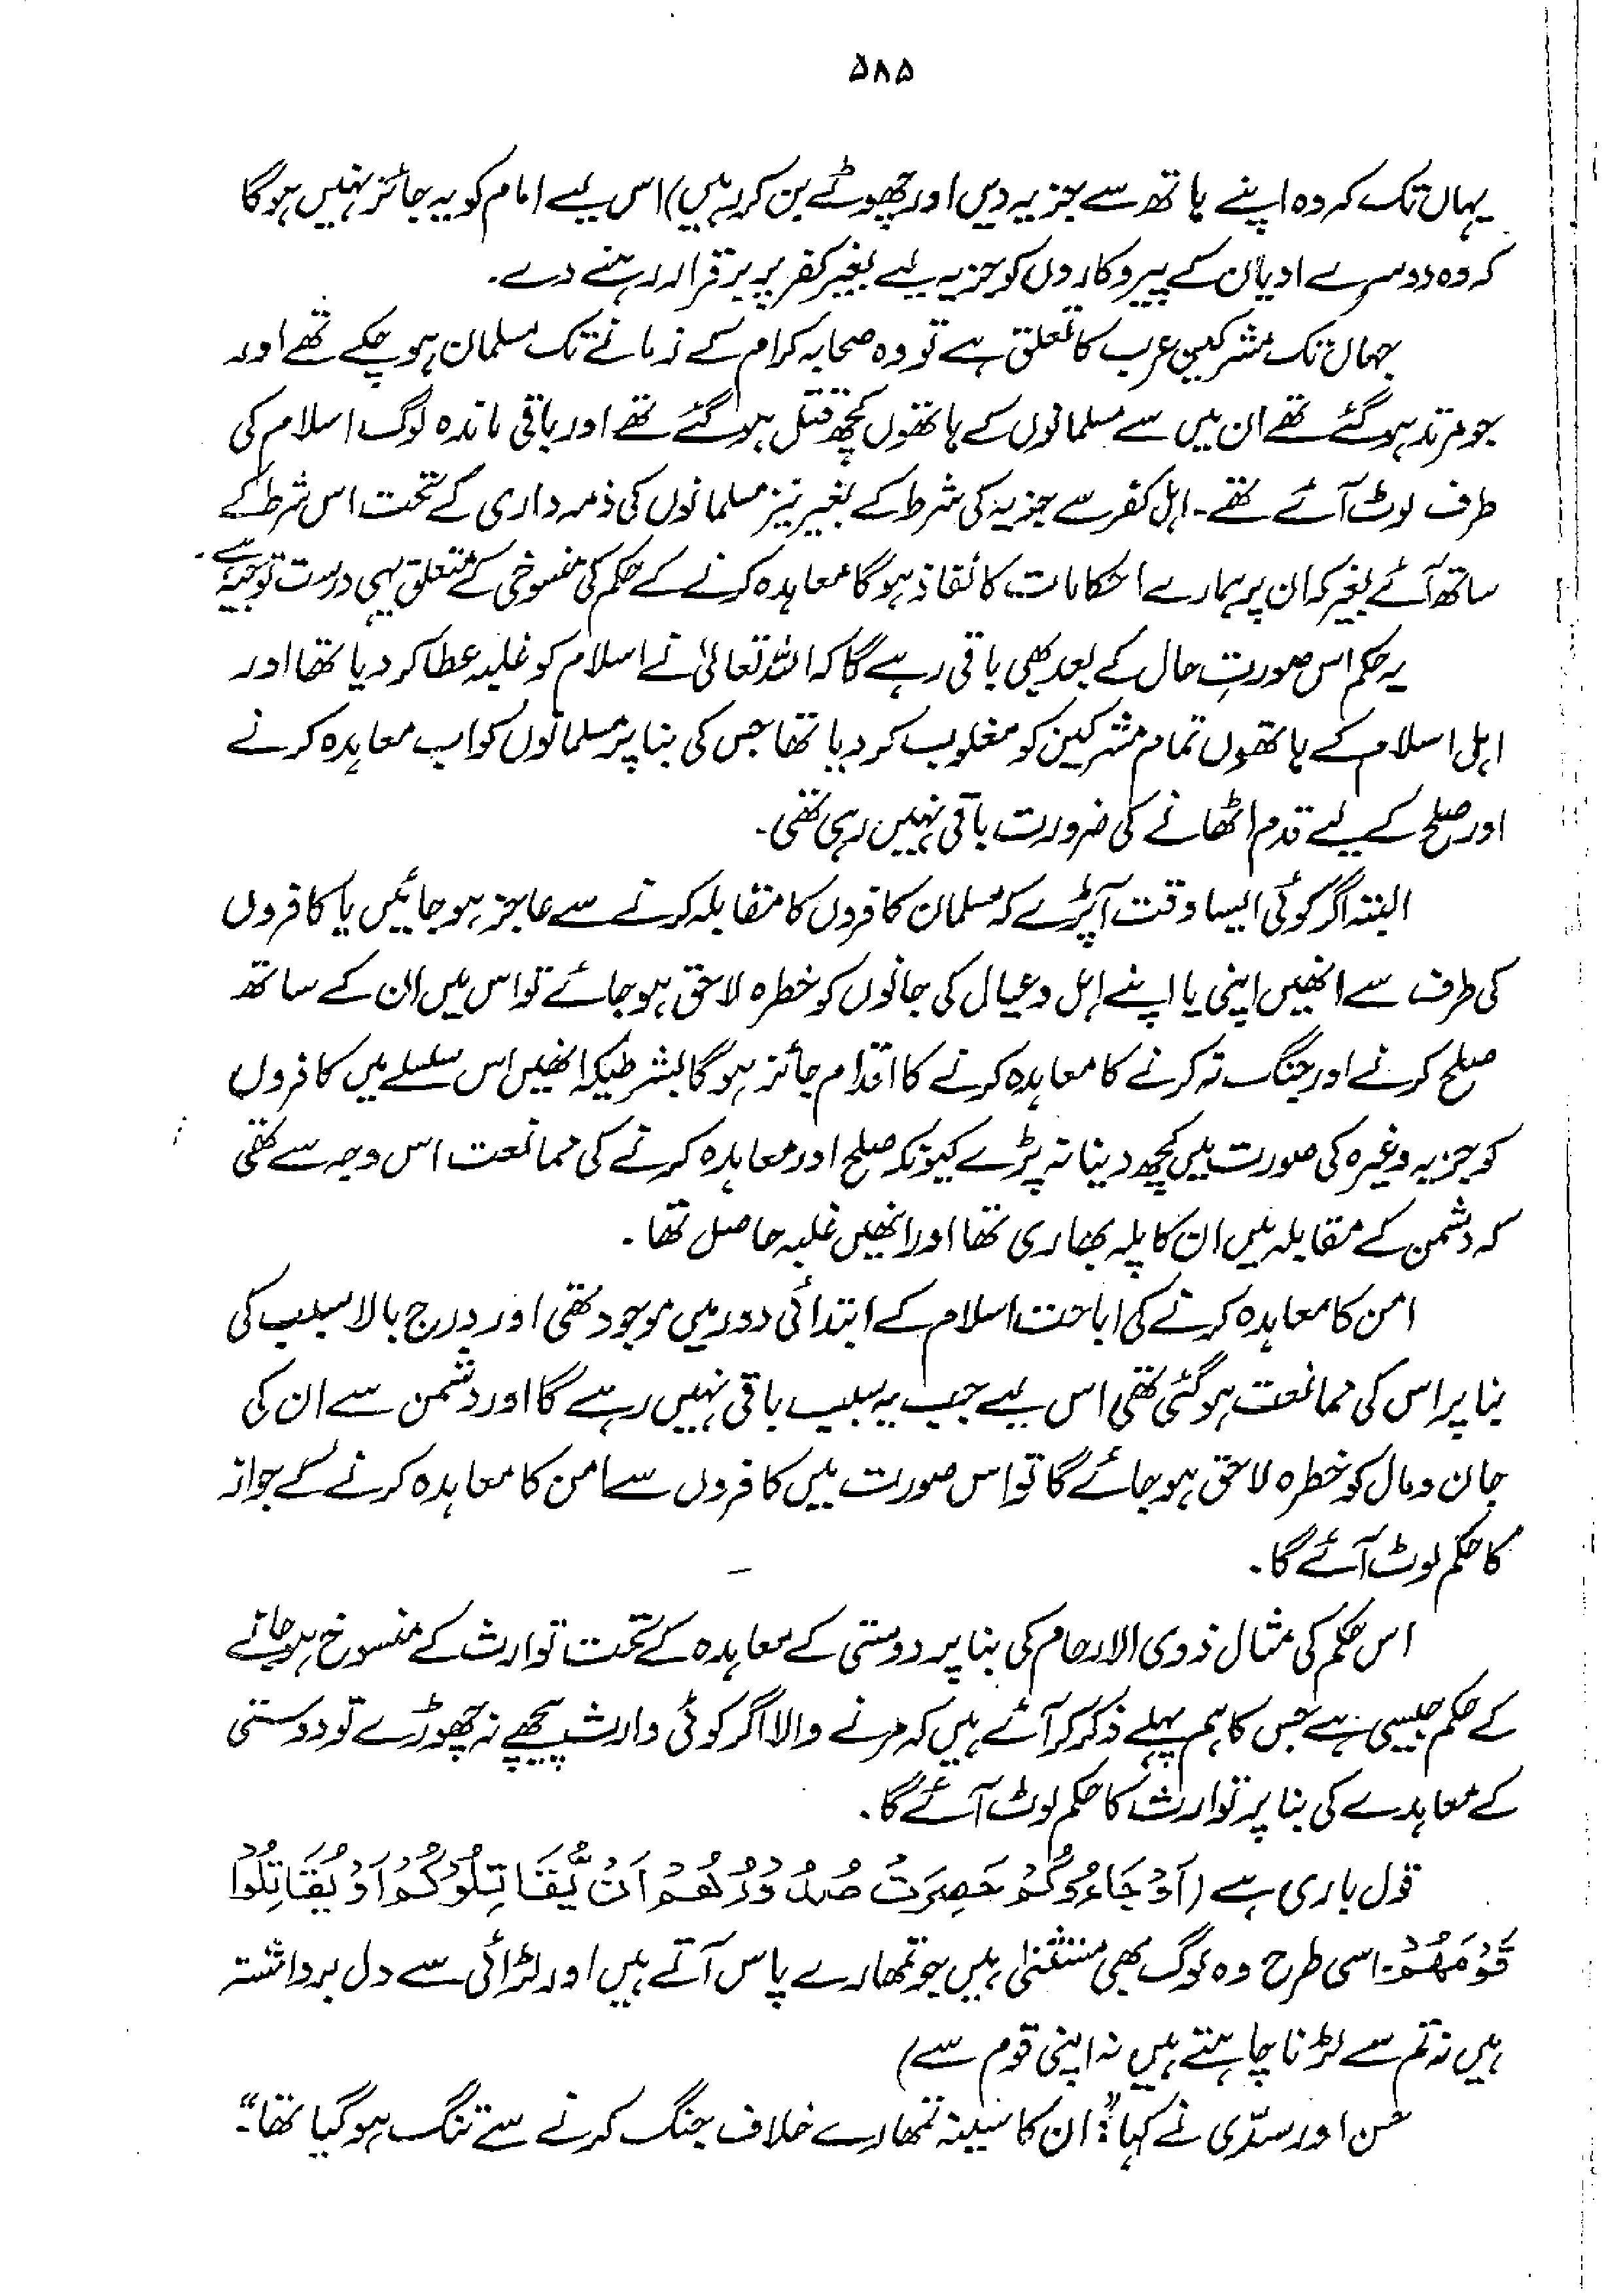 ۵۸۵
یہاں تک کہ وہ اپنے ہاتھ سے جزیہ دیں اور چھوٹے بن کر رہیں) اس لیے امام کو یہ جائز نہیں ہوگا
کہ وہ دوسرے ادیان کے پیروکاروں کو جزیہ لیے بغیر کفر پر برقرار رہنے دے۔
جہاں تک مشرکین عرب کا تعلق ہے تو وہ صحابہ کرام کے زمانے تک مسلمان ہو چکے تھے اور
جو مرتد ہو گئے تھے ان میں سے مسلمانوں کے ہاتھوں کچھ قتل ہو گئے تھے اور باقی ماندہ لوگ اسلام کی
طرف لوٹ آئے تھے۔ اہل کفر سے جزیہ کی شرط کے بغیر نیز مسلمانوں کی ذمہ داری کے تحت اس شرط کے
ساتھ آئے بغیر کہ ان پر ہمارے احکامات کا نفاذ ہوگا معاہدہ کرنے کے حکم کی منسوخی کے متعلق یہی درست توجیہ ہے۔
یہ حکم اس صورتِ حال کے بعد بھی باقی رہے گا کہ اللہ تعالیٰ نے اسلام کو غلبہ عطا کر دیا تھا اور
اہل اسلام کے ہاتھوں تمام مشرکین کو مغلوب کر دیا تھا جس کی بنا پر مسلمانوں کو اب معاہدہ کرنے
اور صلح کے لیے قدم اٹھانے کی ضرورت باقی نہیں رہی تھی۔
البتہ اگر کوئی ایسا وقت آ پڑے کہ مسلمان کافروں کا مقابلہ کرنے سے عاجز ہو جائیں یا کافروں
کی طرف سے انھیں اپنی یا اپنے اہل و عیال کی جانوں کو خطرہ لاحق ہو جائے تو اس میں ان کے ساتھ
صلح کرنے اور جنگ نہ کرنے کا معاہدہ کرنے کا اقدام جائز ہوگا بشرطیکہ انھیں اس سلسلے میں کافروں
کو جزیہ وغیرہ کی صورت میں کچھ دینا نہ پڑے کیونکہ صلح اور معاہدہ کرنے کی ممانعت اس وجہ سے تھی
کہ دشمن کے مقابلہ میں ان کا پلہ بھاری تھا اور انھیں غلبہ حاصل تھا۔
امن کا معاہدہ کرنے کی اباحت اسلام کے ابتدائی دور میں موجود تھی اور درج بالا سبب کی
بنا پر اس کی ممانعت ہو گئی تھی اس لیے جب یہ سبب باقی نہیں رہے گا اور دشمن سے ان کی
جان و مال کو خطرہ لاحق ہو جائے گا تو اس صورت میں کافروں سے امن کا معاہدہ کرنے کے جواز
کا حکم لوٹ آئے گا۔
اس حکم کی مثال ذوی الارحام کی بنا پر دوستی کے معاہدہ کے تحت توارث کے منسوخ ہو جانے
کے حکم جیسی ہے جس کا ہم پہلے ذکر کر آئے ہیں کہ مرنے والا اگر کوئی وارث پیچھے نہ چھوڑے تو دوستی
کے معاہدے کی بنا پر توارث کا حکم لوٹ آئے گا۔
قول باری ہے (اَوْ جَاءُوْكُمْ حَصِرَتْ صُدُوْرُهُمْ اَنْ يُّقَاتِلُوْكُمْ اَوْ يُقَاتِلُوْا
قَوْمَهُمْ۔ اسی طرح وہ لوگ بھی مستثنیٰ ہیں جو تمھارے پاس آتے ہیں اور لڑائی سے دل برداشتہ
ہیں نہ تم سے لڑنا چاہتے ہیں نہ اپنی قوم سے)
حسن اور سدّی نے کہا؛ "ان کا سینہ تمھارے خلاف جنگ کرنے سے تنگ ہو گیا تھا"۔